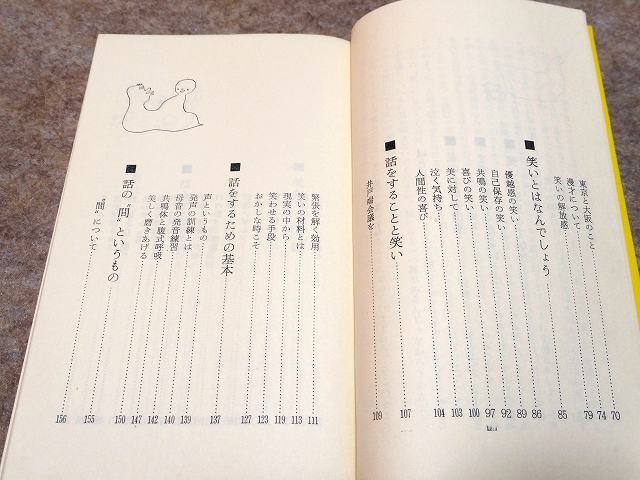 東京と大阪のこと……70
漫才について……74
笑いの解放感……79
■ 笑いとはなんでしょう……85
優越感の笑い……86
自己保存の笑い……89
共鳴の笑い……92
喜びの笑い……97
美に対して……100
泣く気持ち……103
人間性の喜び……104
■ 話をすることと笑い……107
井戸端会議を……109
緊張を解く効用……111
笑いの材料とは……113
現実の中から……119
笑わせる手段……123
おかしな時こそ……127
■ 話をするための基本……137
声というもの……139
発声の訓練とは……140
母音の発音練習……142
共鳴体と腹式呼吸……147
美しく磨きあげる……150
■ 話の〝間〟というもの……155
〝間〟について……156